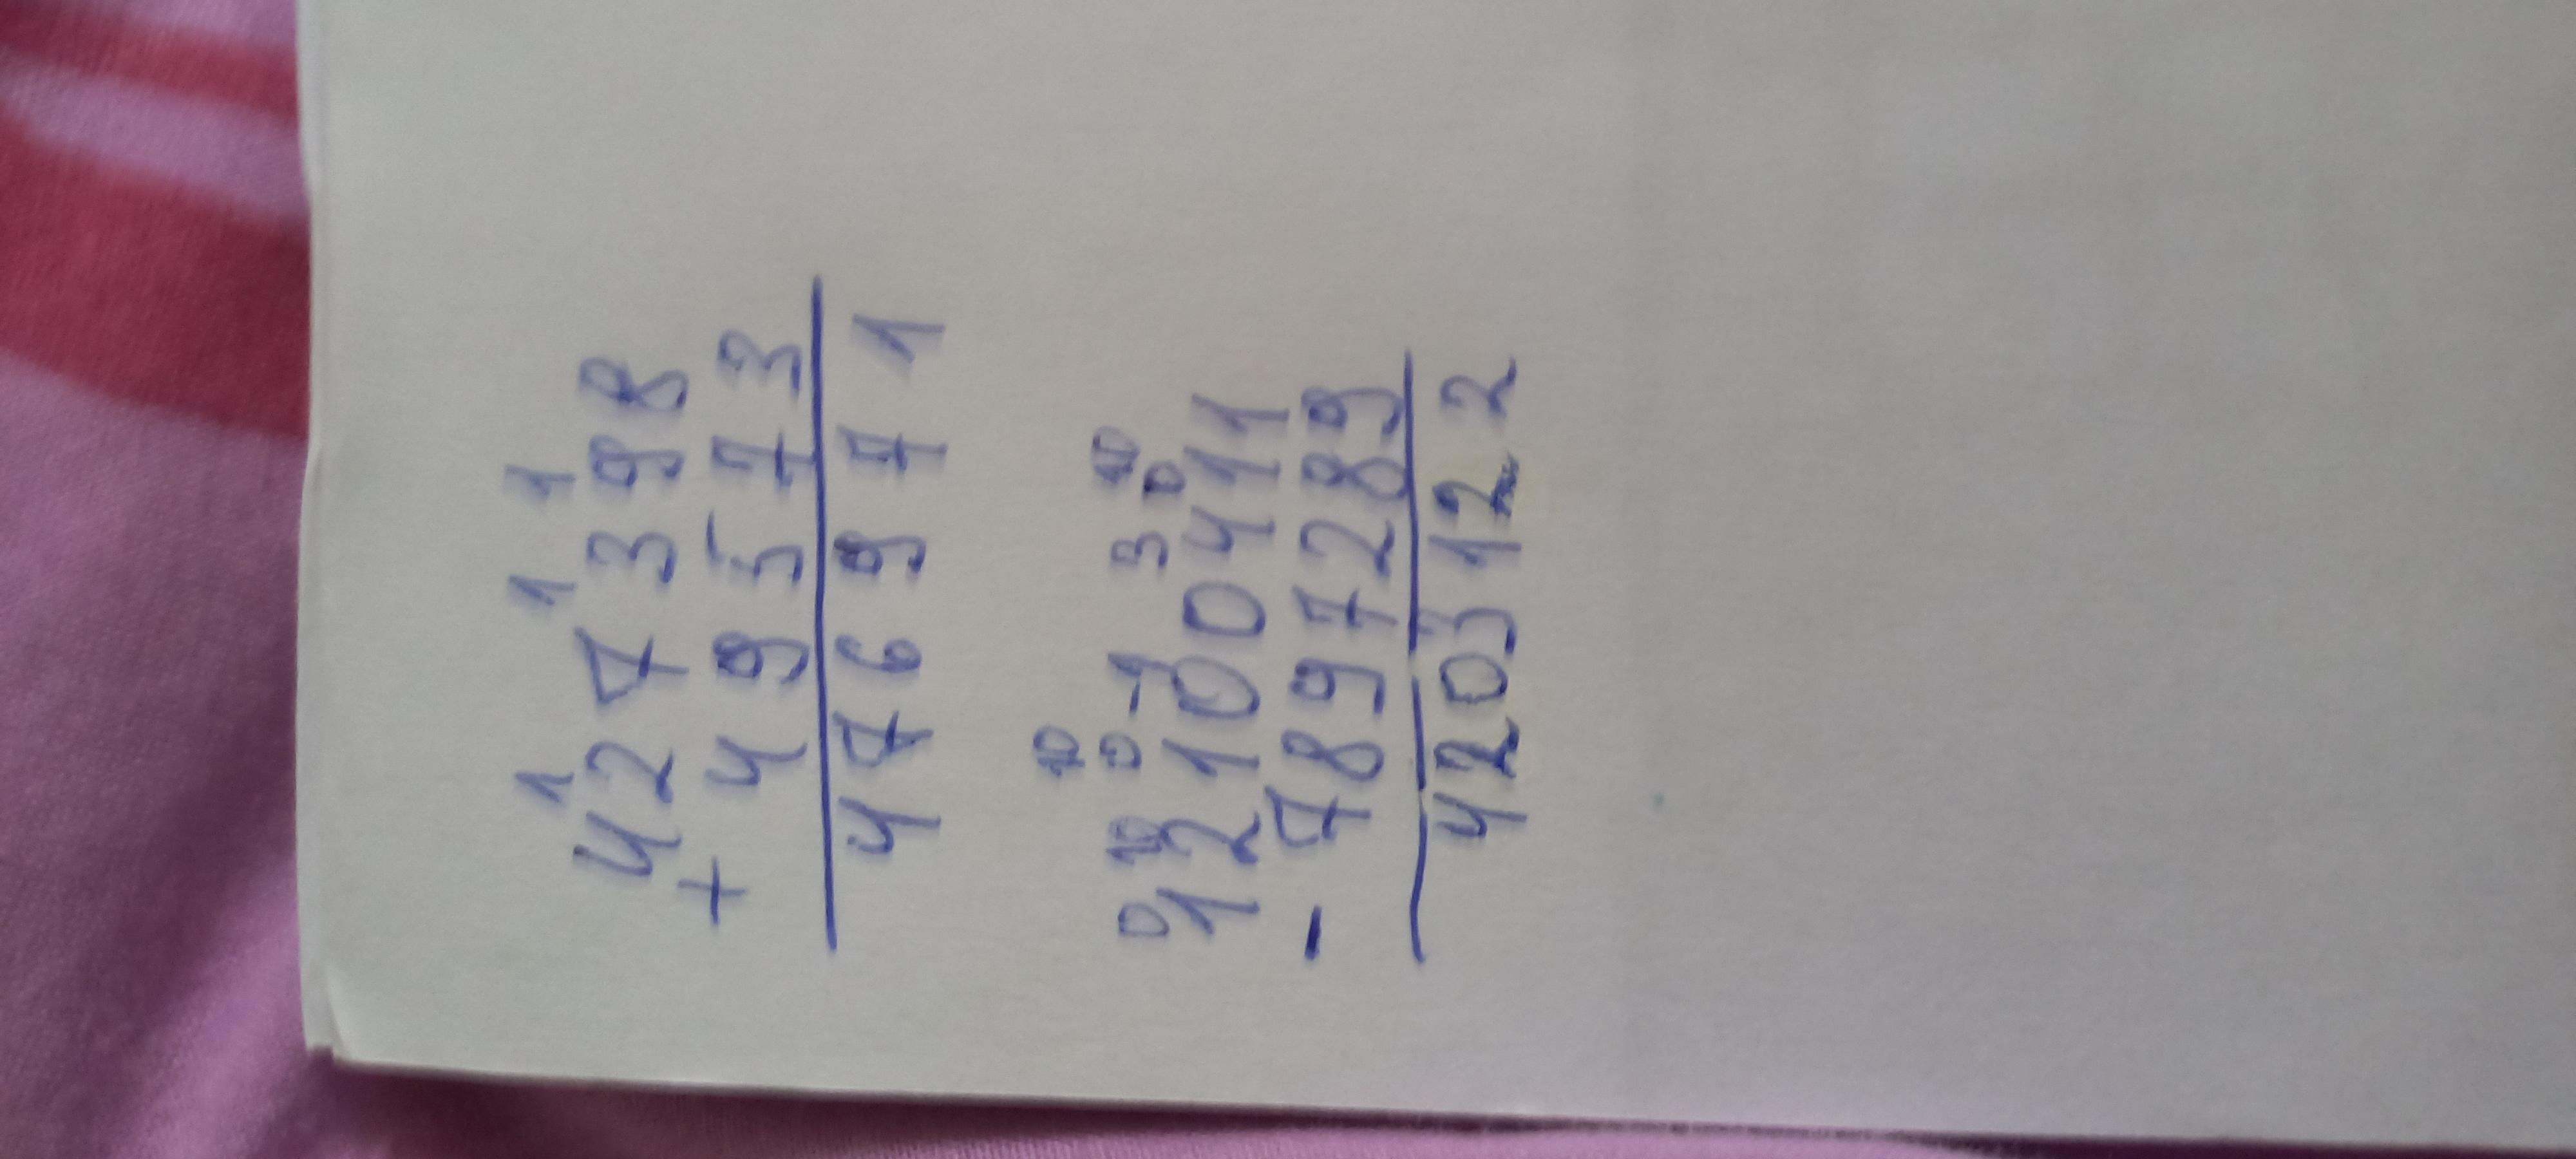 1 1 1
427398
+ 49573
476971
10 10
0 10 0 -1 3 0
12100411
- 7897289
4203122